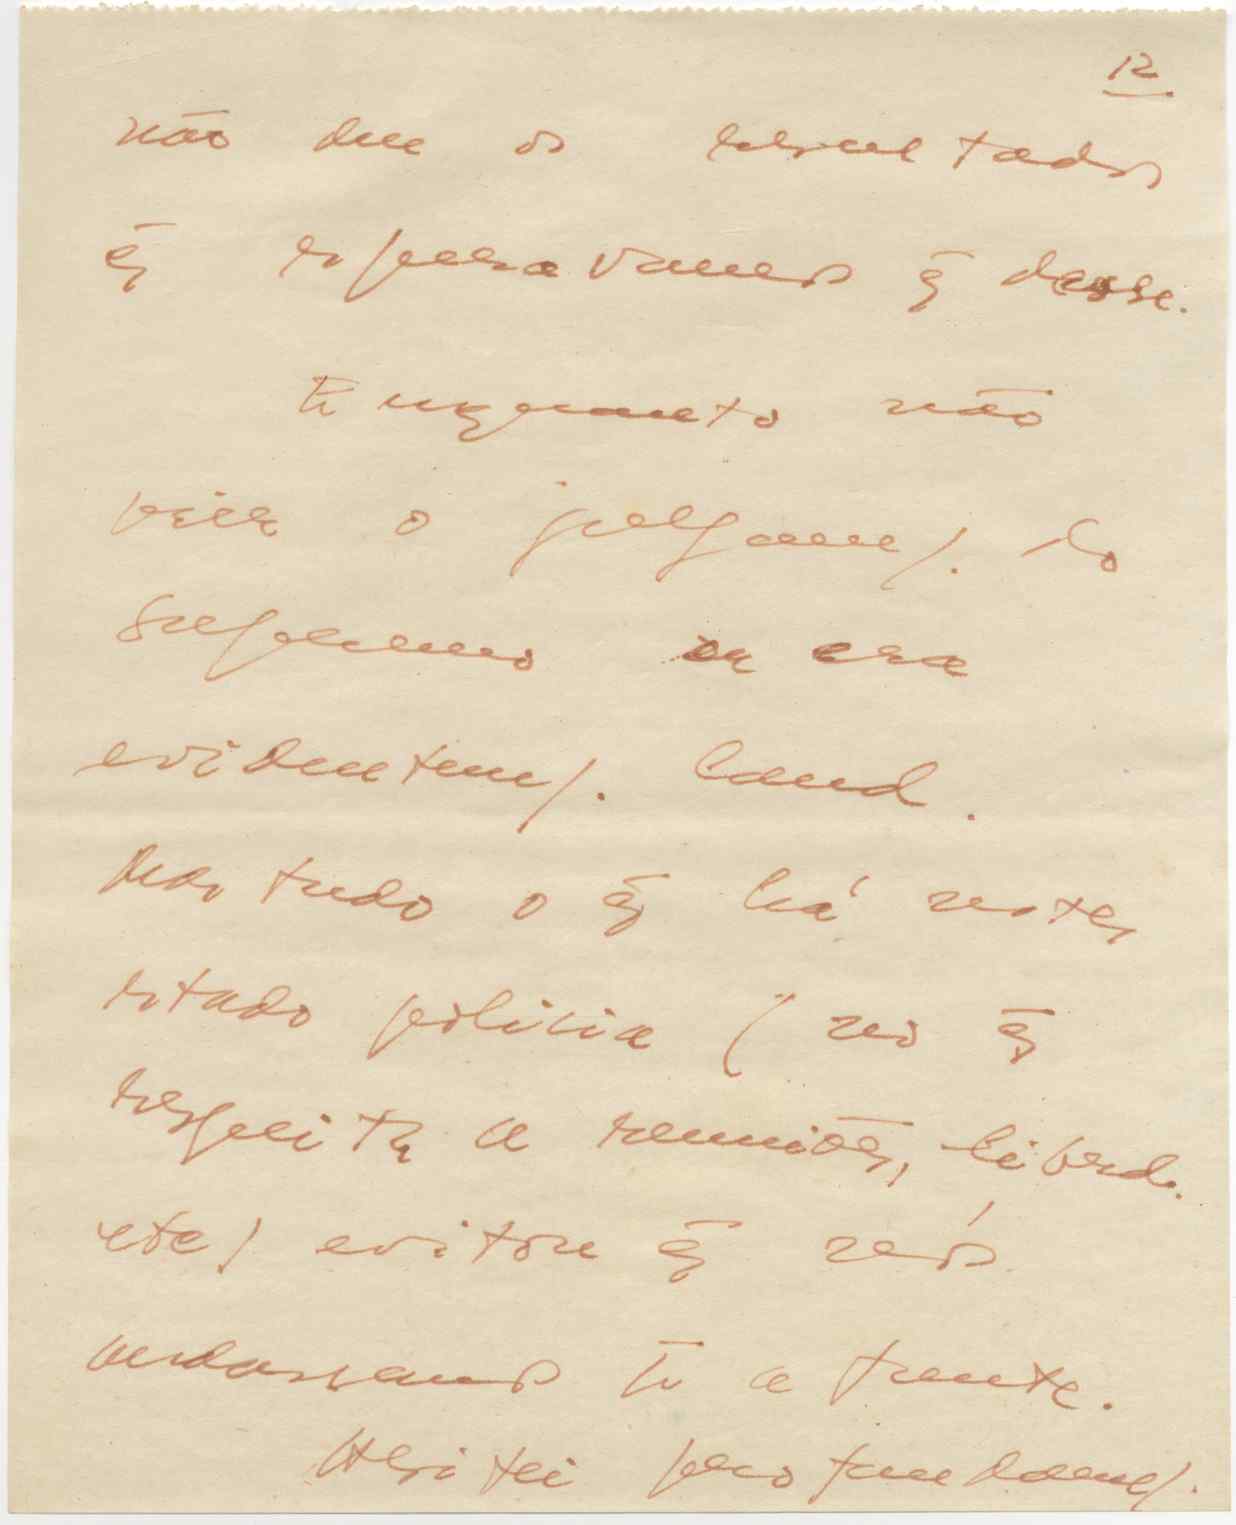 12
não deu os resultados
q̃ esperavamos q̃ desse.
Enquanto não
vier o julgam/. do
Supremo ele era
evidentem/. cand.
Mas tudo o q̃ há neste,
estado policia ( no q̃
respeita a reuniões, liberd.
etc) evitou q̃ nós
andassemos p̃ a frente.
Hesitei profundam/.